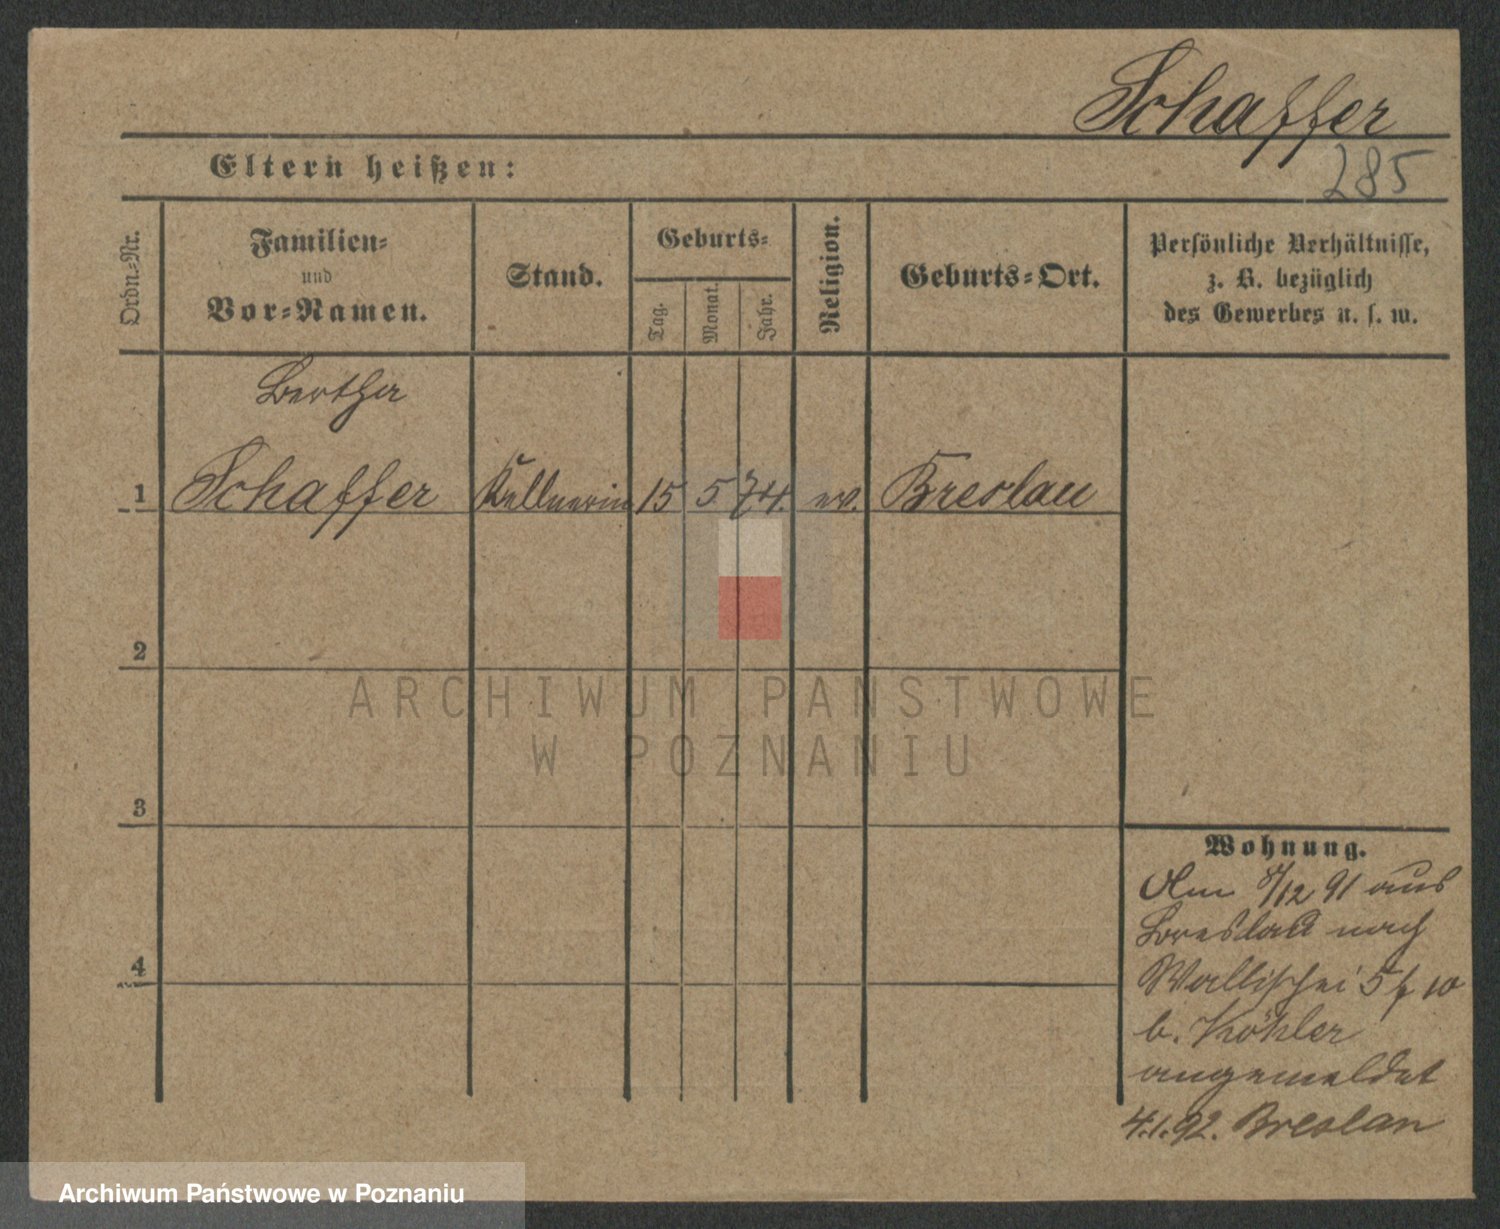 Schaffer
285
Eltern heißen:
Ordn.-Nr.
Familien-
und
Vor-Namen.
Stand.
Geburts-
Tag.
Monat.
Jahr.
Religion.
Geburts-Ort.
Persönliche Verhältnisse,
z. B. bezüglich
des Gewerbes u. s. w.
Bertha
1 Schaffer Kellnerin 15 5 74. ev. Breslau
2
3
4
Wohnung.
Am /12 91 aus
Breslau nach
Wallischei 5/ 10
b. Köhler
angemeldet
4.1.92. Breslau
ARCHIWUM PAŃSTWOWE
W POZNANIU
Archiwum Państwowe w Poznaniu